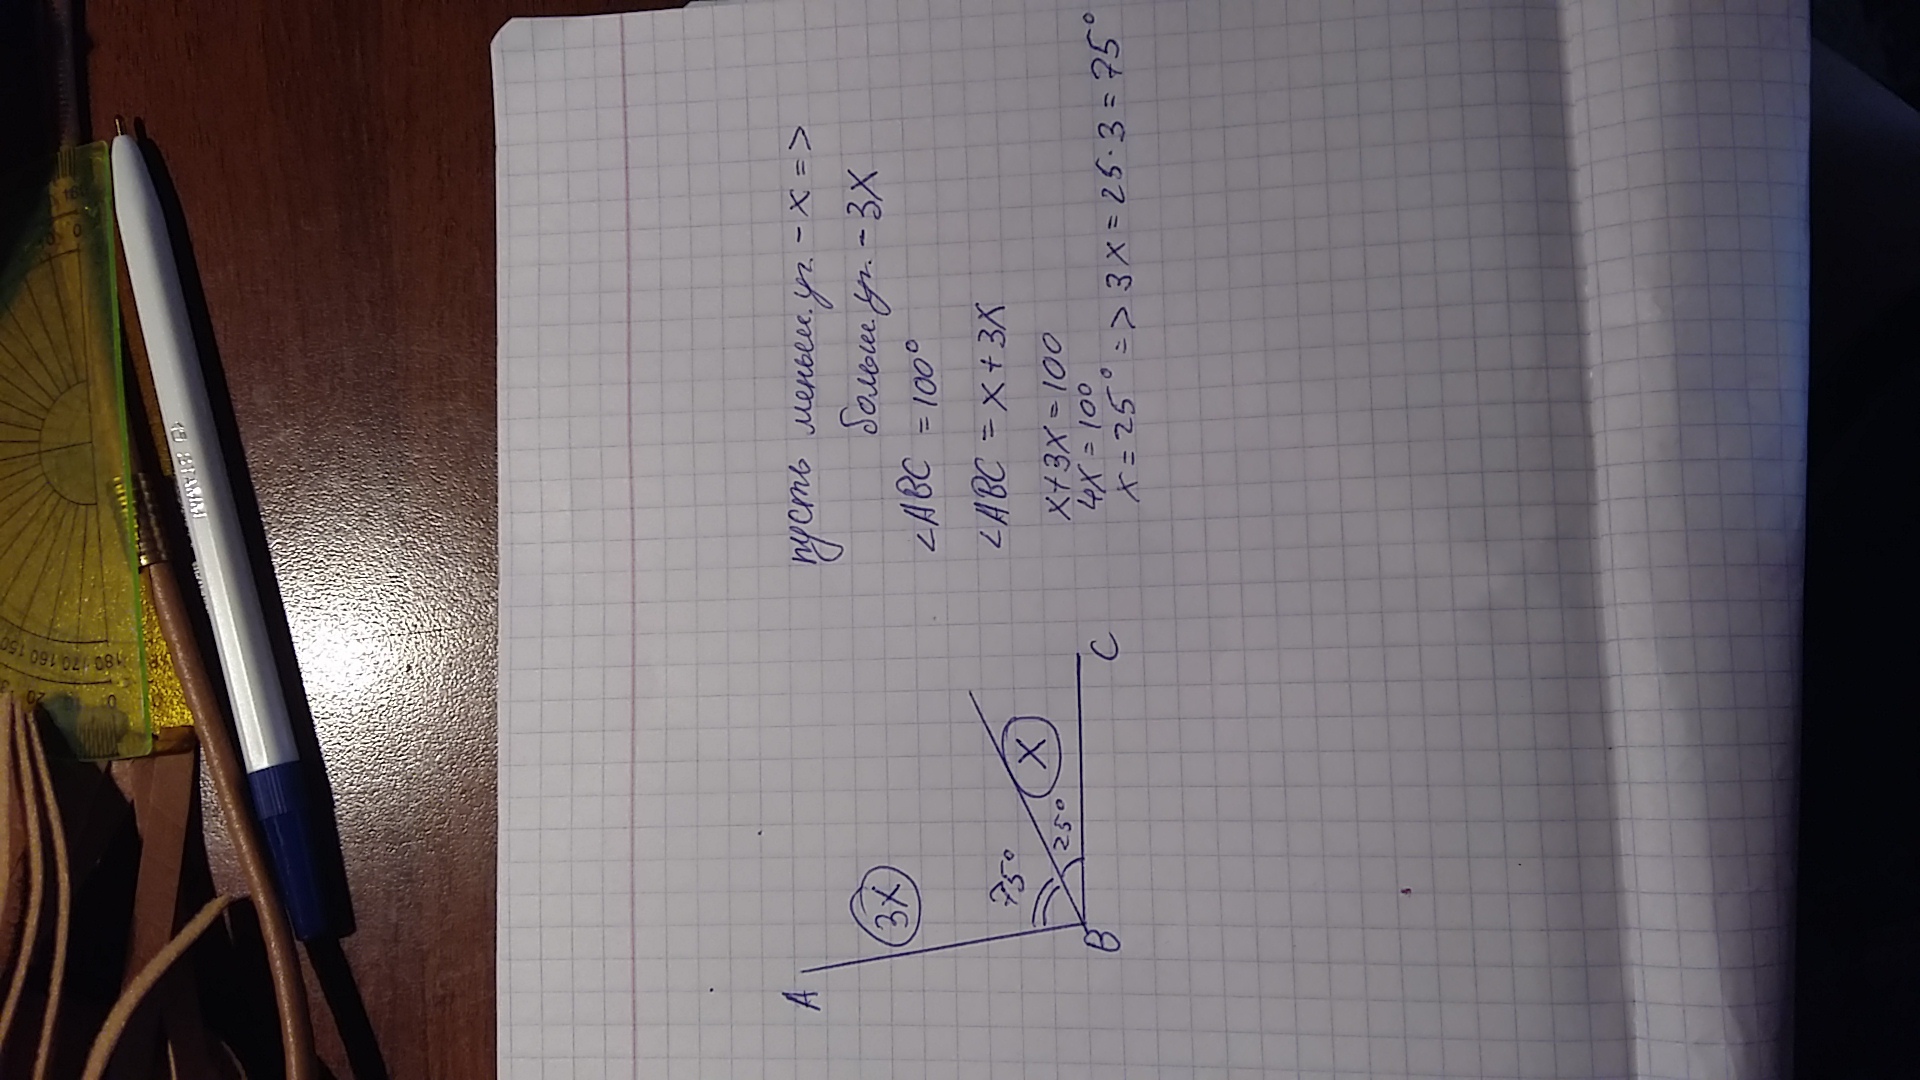 пусть меньш. уг. - x =>
больш. уг. - 3x
∠ABC = 100°
∠ABC = x + 3x
x + 3x = 100
4x = 100
x = 25° => 3x = 25 · 3 = 75°
A
3x
75°
x
25°
B
C
STAMM
180 170 160 150